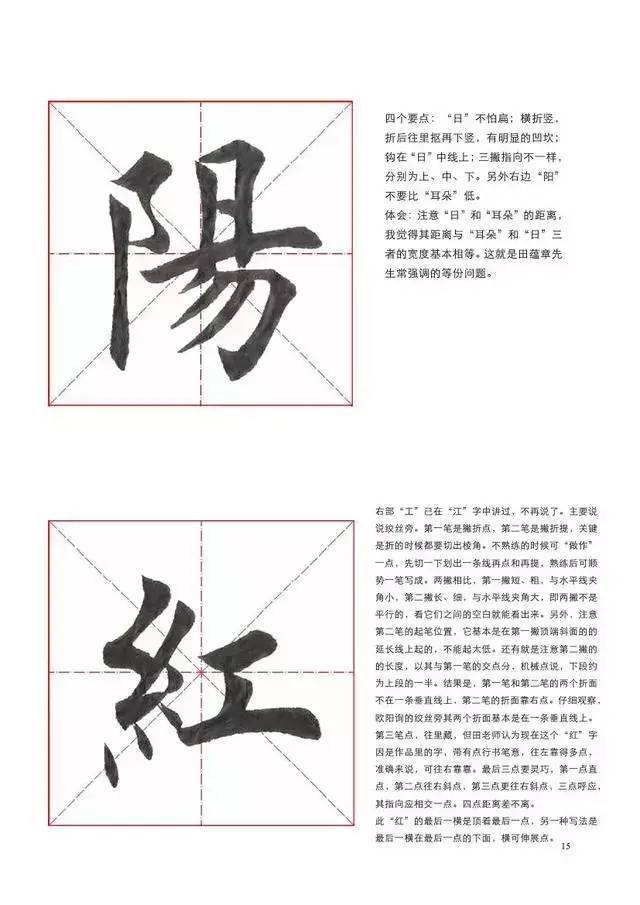 陽
四个要点：“日”不怕扁；横折竖，
折后往里抠再下竖，有明显的凹坎；
钩在“日”中线上；三撇指向不一样，
分别为上、中、下。另外右边“阳”
不要比“耳朵”低。
体会：注意“日”和“耳朵”的距离，
我觉得其距离与“耳朵”和“日”三
者的宽度基本相等。这就是田蕴章先
生常强调的等份问题。
紅
右部“工”已在“江”字中讲过，不再说了。主要说
说绞丝旁。第一笔是撇折点，第二笔是撇折提，关键
是折的时候都要切出棱角。不熟练的时候可“做作”
一点，先切一下划出一条线再点和再提，熟练后可顺
势一笔写成。两撇相比，第一撇短、粗，与水平线夹
角小，第二撇长、细，与水平线夹角大，即两撇不是
平行的，看它们之间的空白就能看出来。另外，注意
第二笔的起笔位置，它基本是在第一撇顶端斜面的的
延长线上起的，不能起太低。还有就是注意第二撇的
的长度，以其与第一笔的交点分，机械点说，下段约
为上段的一半。结果是，第一笔和第二笔的两个折面
不在一条垂直线上，第二笔的折面靠右点。仔细观察，
欧阳询的绞丝旁其两个折面基本是在一条垂直线上。
第三笔点，往里藏，但田老师认为现在这个“红”字
因是作品里的字，带有点行书笔意，往左靠得多点，
准确来说，可往右靠靠。最后三点要灵巧，第一点直
点，第二点往右斜点，第三点更往右斜点，三点呼应，
其指向应相交一点。四点距离差不离。
此“红”的最后一横是顶着最后一点，另一种写法是
最后一横在最后一点的下面，横可伸展点。
15